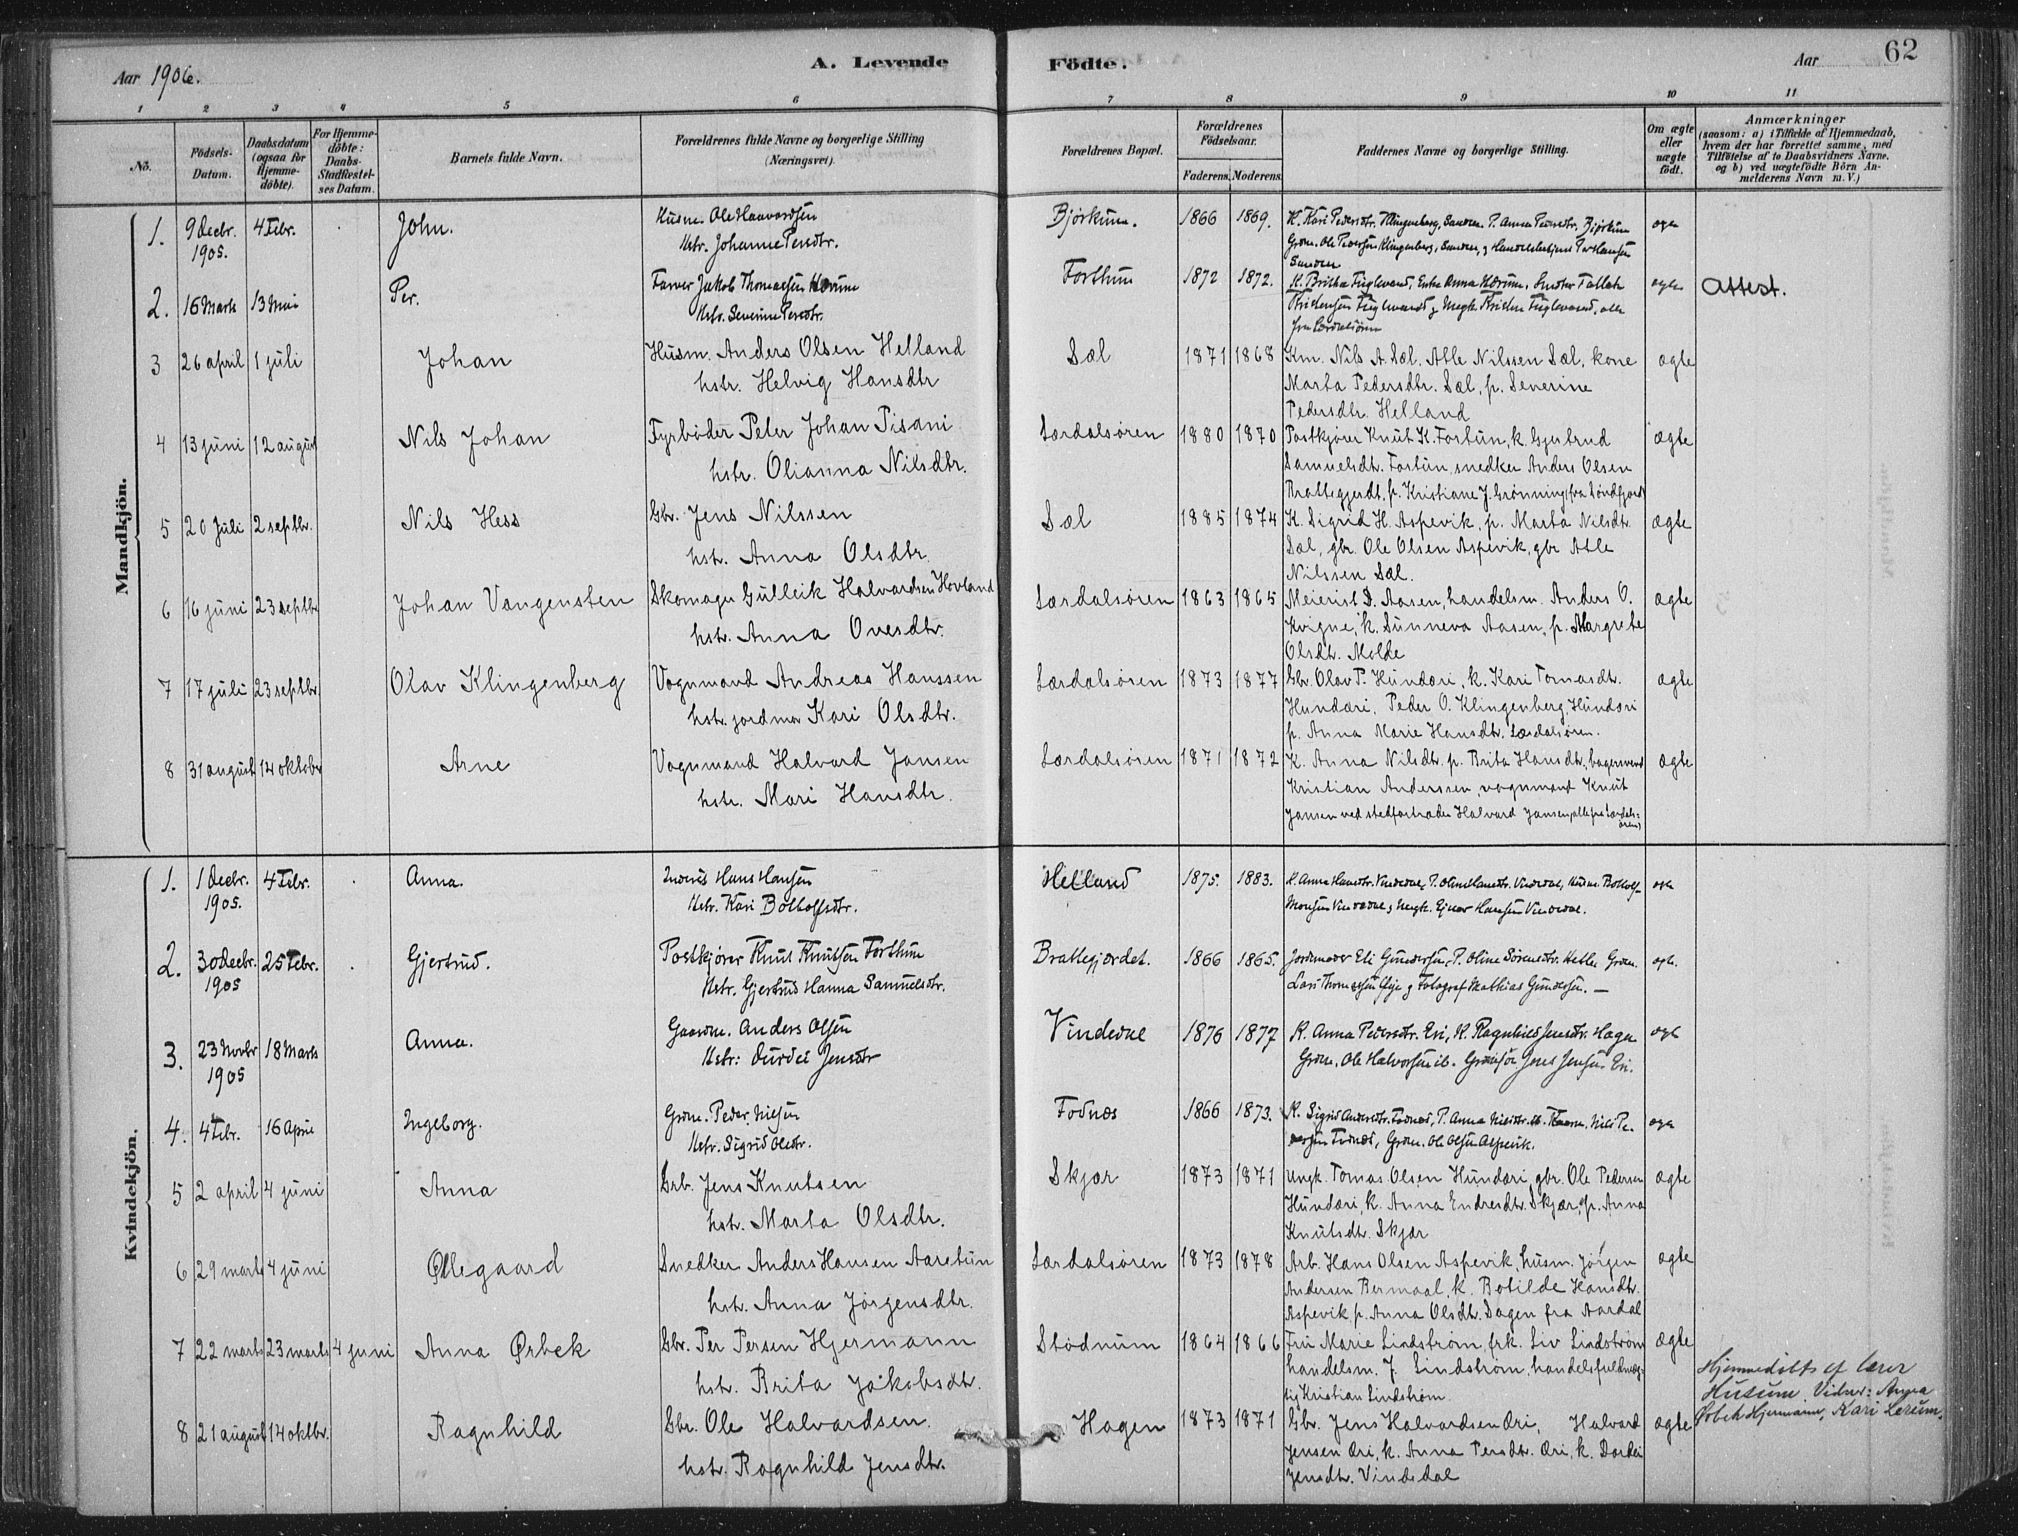 Aar 1906.
A. Levende
Födte.
Aar
62
1 2 3 4 5 6 7 8 9 10 11
No.
Födsels-Datum.
Daabsdatum (ogsaa for Hjemme-döbte).
For Hjemme-döbte: Daabs-Stadfæstel-ses Datum.
Barnets fulde Navn.
Forældrenes fulde Navne og borgerlige Stilling (Næringsvei).
Forældrenes Bopæl.
Forældrenes Födselsaar.
Faderens. Moderens.
Faddernes Navne og borgerlige Stilling.
Om ægte eller uægte födt.
Anmærkninger
(saasom: a) i Tilfælde af Hjemmedaab, hvem der har forrettet samme, med Tilföielse af to Daabsvidners Navne, og b) ved uægtefödte Börn An-melderens Navn m.V.)
Mandkjön.
1. 9 Decbr. 1905. 4 Febr. John.
Husm. Ole Haavardsen
Hstr. Johanne Persdtr.
Bjørkum. 1866 1869.
K. Kari Pedersdtr. Klingenberg, Sanden. P. Anna Pedersdtr. Bjørkum
Grdm. Ole Pedersen Klingenberg, Sanden, g Handelsbetjent Per Hansen
Sanden
2. 16 Marts 13 Mai Per.
Farver Jakob Thomassen Hærum
Hstr. Severine Persdtr.
Forthun 1872 1872.
K. Britha Fuglesand, Enke Anna Hærum, Snedker Tollak
Kristensen Fuglesand g Ungk. Kristen Fuglesand, alle
fra Lærdalsøren
Attest.
3 26 april 1 juli Johan
Husm. Anders Olsen Helland
hstr. Helvig Hansdtr
Sæl 1871 1868
Km. Nils A. Sæl, Atle Nilssen Sæl, kone
Marta Pedersdtr. Sæl, p. Severine
Pedersdtr. Helland
ægte
4 13 juni 12 august Nils Johan
Fyrbøder Peter Johan Pisani
hstr. Olianna Nilsdtr.
Lærdalsøren 1880 1870
Postkjører Knut K. Fortun, k. Gjertrud
Samuelsdtr. Fortun, snedker Anders Olsen
Brattegjerdt, p. Kristiane J. Grønning (fra Søndfjord)
ægte
5 20 juli 2 septbr. Nils Hess
Gbr. Jens Nilssen
hstr. Anna Olsdtr.
Sæl 1885 1874
K. Sigrid H. Aspevik, p. Marta Nilsdtr.
Sæl, gbr. Ole Olsen Aspevik, gbr Atle
Nilssen Sæl.
ægte
6 16 juni 23 septbr Johan Vangensten
Skomager Gulleik Halvardsen Hovland
hstr. Anna Ovesdtr.
Lærdalsøren 1863 1865
Meierist D. Aasen, handelsm. Anders O.
Kvigne, k. Sunneva Aasen, p. Margrete
Olsdtr. Molde
ægte
7 17 juli 23 septbr. Olav Klingenberg
Vognmand Andreas Hanssen
hstr. jordmor Kari Olsdtr.
Lærdalsøren 1873 1877
Gbr. Olav P. Hundæri, k. Kari Tomasdtr.
Hundæri, Peder O. Klingenberg Hundæri
p. Anna Marie Hansdtr. Lærdalsøren.
ægte
8 31 august 14 oktober Arne
Vognmand Halvard Jansen
hstr. Mari Hansdtr.
Lærdalsøren 1871 1872
K. Anna Nilsdtr. p. Brita Hansdtr, bagersvend
Kristian Anderssen, vognmand Knut
Jansen ved stedfortræder Halvard Jansen, alle fra Lærdals-
øren)
ægte
Kvindekjön.
1. 1 Decbr. 1905. 4 Febr. Anna.
Inderst Hans Hansen
Hstr. Kari Botholfsdtr.
Helland 1875. 1883.
2. 30 Decbr. 1905 25 Febr. Gjertrud.
Postkjører Knut Knutsen Forthun
Hstr. Gjertrud Hanna Samuelsdtr.
Brattegjærdet. 1866 1865.
Jordemoder Eli Gundersen, P. Oline Sørensdtr. Hetle Grdm.
Lars Thomassen Øie g Fotograf Mathias Gundersen.
3. 23 Novbr 1905 18 Marts Anna.
Gaardm. Anders Olsen
Hstr: Durdei Jensdtr
Vindedal 1876 1877
K. Anna Pedersdtr. Eri, K. Ragnhild Jensdtr. Hagen
Grdm. Ole Halvorsen ib. Grdmsøn Jens Jensen Eri.
4. 4 Febr. 16 April Ingeborg.
Grdm. Peder Nilsen
Hstr. Sigrid Olsdtr.
Fodnæs 1866 1873.
5 2 april 4 juni Anna
Grb. Jens Knutsen
hstr. Marta Olsdtr.
Skjær 1873 1871
Ungk. Tomas Olsen Hundæri, gbr. Ole Pedersen
Hundæri, k. Anna Endresdtr. Skjær, p. Anna
Knutsdtr. Skjær
ægte
6 29 marts 4 juni Øllegaard
Snedker Anders Hansen Aaretun
hstr. Anna Jørgensdtr.
Lærdalsøren 1873 1878
Arb. Hans Olsen Aspevik, husm. Jørgen
Andersen Bermaal, k. Botilde Hansdtr.
Aspevik p. Anna Olsdtr. Dagen fra Aardal
ægte
7 22 marts 23 marts 4 juni Anna Ørbek
Gbr. Per Persen Hjermann
hstr. Brita Jakobsdtr.
Stødnum 1864 1866
Fru Marie Lindstrøm, frk. Liv Lindstrøm
handelsm. J. Lindstrøm, handelsfuldmæg-
tig Kristian Lindstrøm.
ægte
Hjemmedøbt af lærer
Husum Vidner: Anna
Ørbek Hjermann, Kari Lerum.
8 21 august 14 oktbr. Ragnhild
Gbr. Ole Halvardsen.
hstr. Ragnhild Jensdtr.
Hagen 1873 1871
Gbr. Jens Halvardsen Æri, Halvard
Jensen Æri, k. Anna Persdtr. Æri, k. Dordei
Jensdtr. Vindedal
ægte